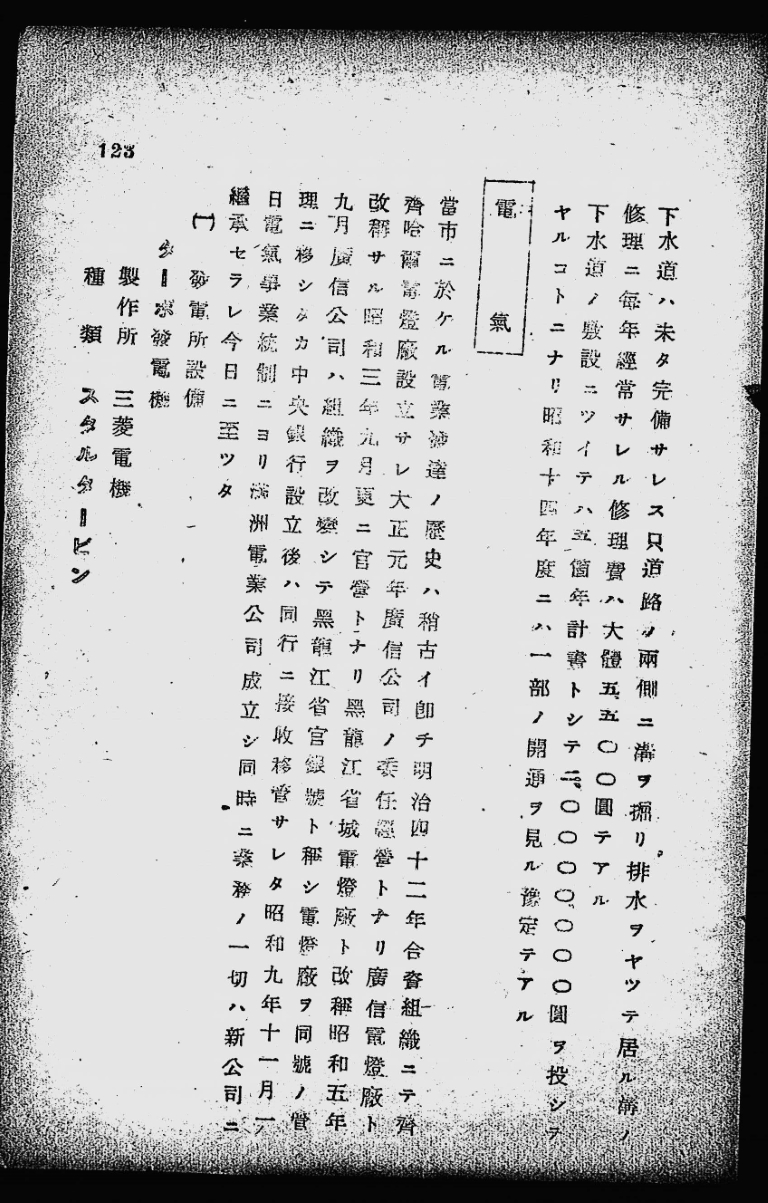 下水道ハ未タ完備サレス只道路ノ兩側ニ溝ヲ掘リ排水ヲヤツテ居ル溝ノ
修理ニ毎年經常サレル修理費ハ大體五、五〇〇圓テアル
下水道ノ敷設ニツイテハ五箇年計書トシテ二、〇〇〇、〇〇〇圓ヲ投シテ
ヤルコトニナリ昭和十四年度ニハ一部ノ開通ヲ見ル豫定テアル
電氣
當市ニ於ケル電業發達ノ歷史ハ稍古イ卽チ明治四十二年合資組織ニテ齊
齊哈爾電燈廠設立サレ大正元年廣信公司ノ委任經營トナリ廣信電燈廠ト
改稱サル昭和三年九月更ニ官營トナリ黑龍江省城電燈廠ト改稱昭和五年
九月廣信公司ハ組織ヲ改變シテ黑龍江省官銀號ト稱シ電燈廠ヲ同號ノ管
理ニ移シタカ中央銀行設立後ハ同行ニ接收移管サレタ昭和九年十一月一
日電氣事業統制ニヨリ滿洲電業公司成立シ同時ニ業務ノ一切ハ新公司ニ
繼承セラレ今日ニ至ツタ
(一) 發電所設備
タービン發電機
製作所 三菱電機
種類 スタルタービン
123